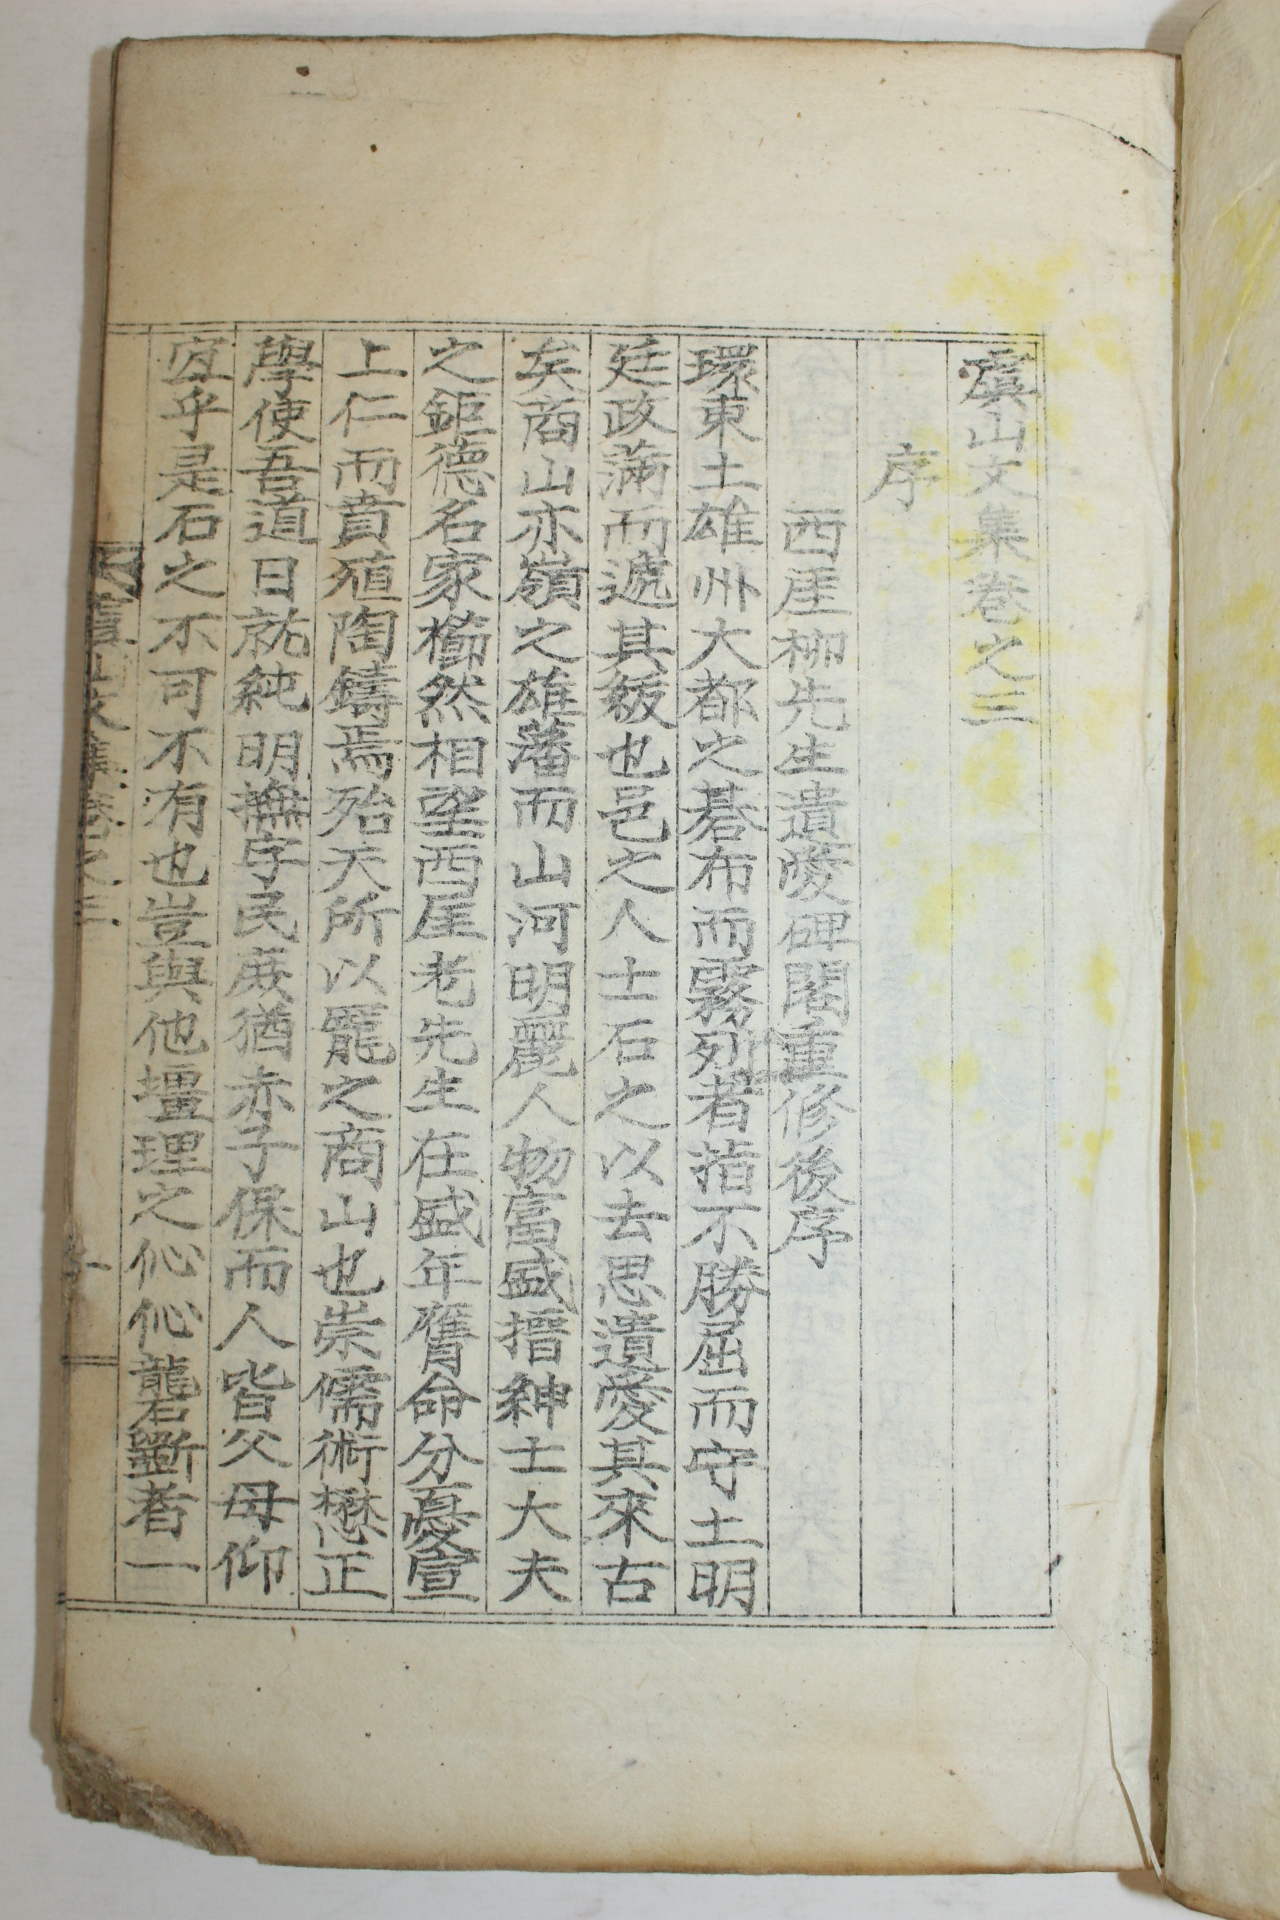 虞山文集卷之三
序
西厓柳先生遺愛碑閣重修後序
環東土雄州大都之碁布而霧列者指不勝屈而守土明
廷政滿而遞其級也邑之人士石之以去思遺愛其來古
矣商山亦嶺之雄藩而山河明麗人物富盛搢紳士大夫
之鉅德名家櫛然相望西厓老先生在盛年膺命分憂宣
上仁而賁殖陶鑄焉殆天所以寵之商山也崇儒術懋正
學使吾道日就純明撫字民庶猶赤子保而人皆父母仰
宜乎是石之不可不有也豈與他壃理之伈伈礱斲者一
虞山文集卷之三
一